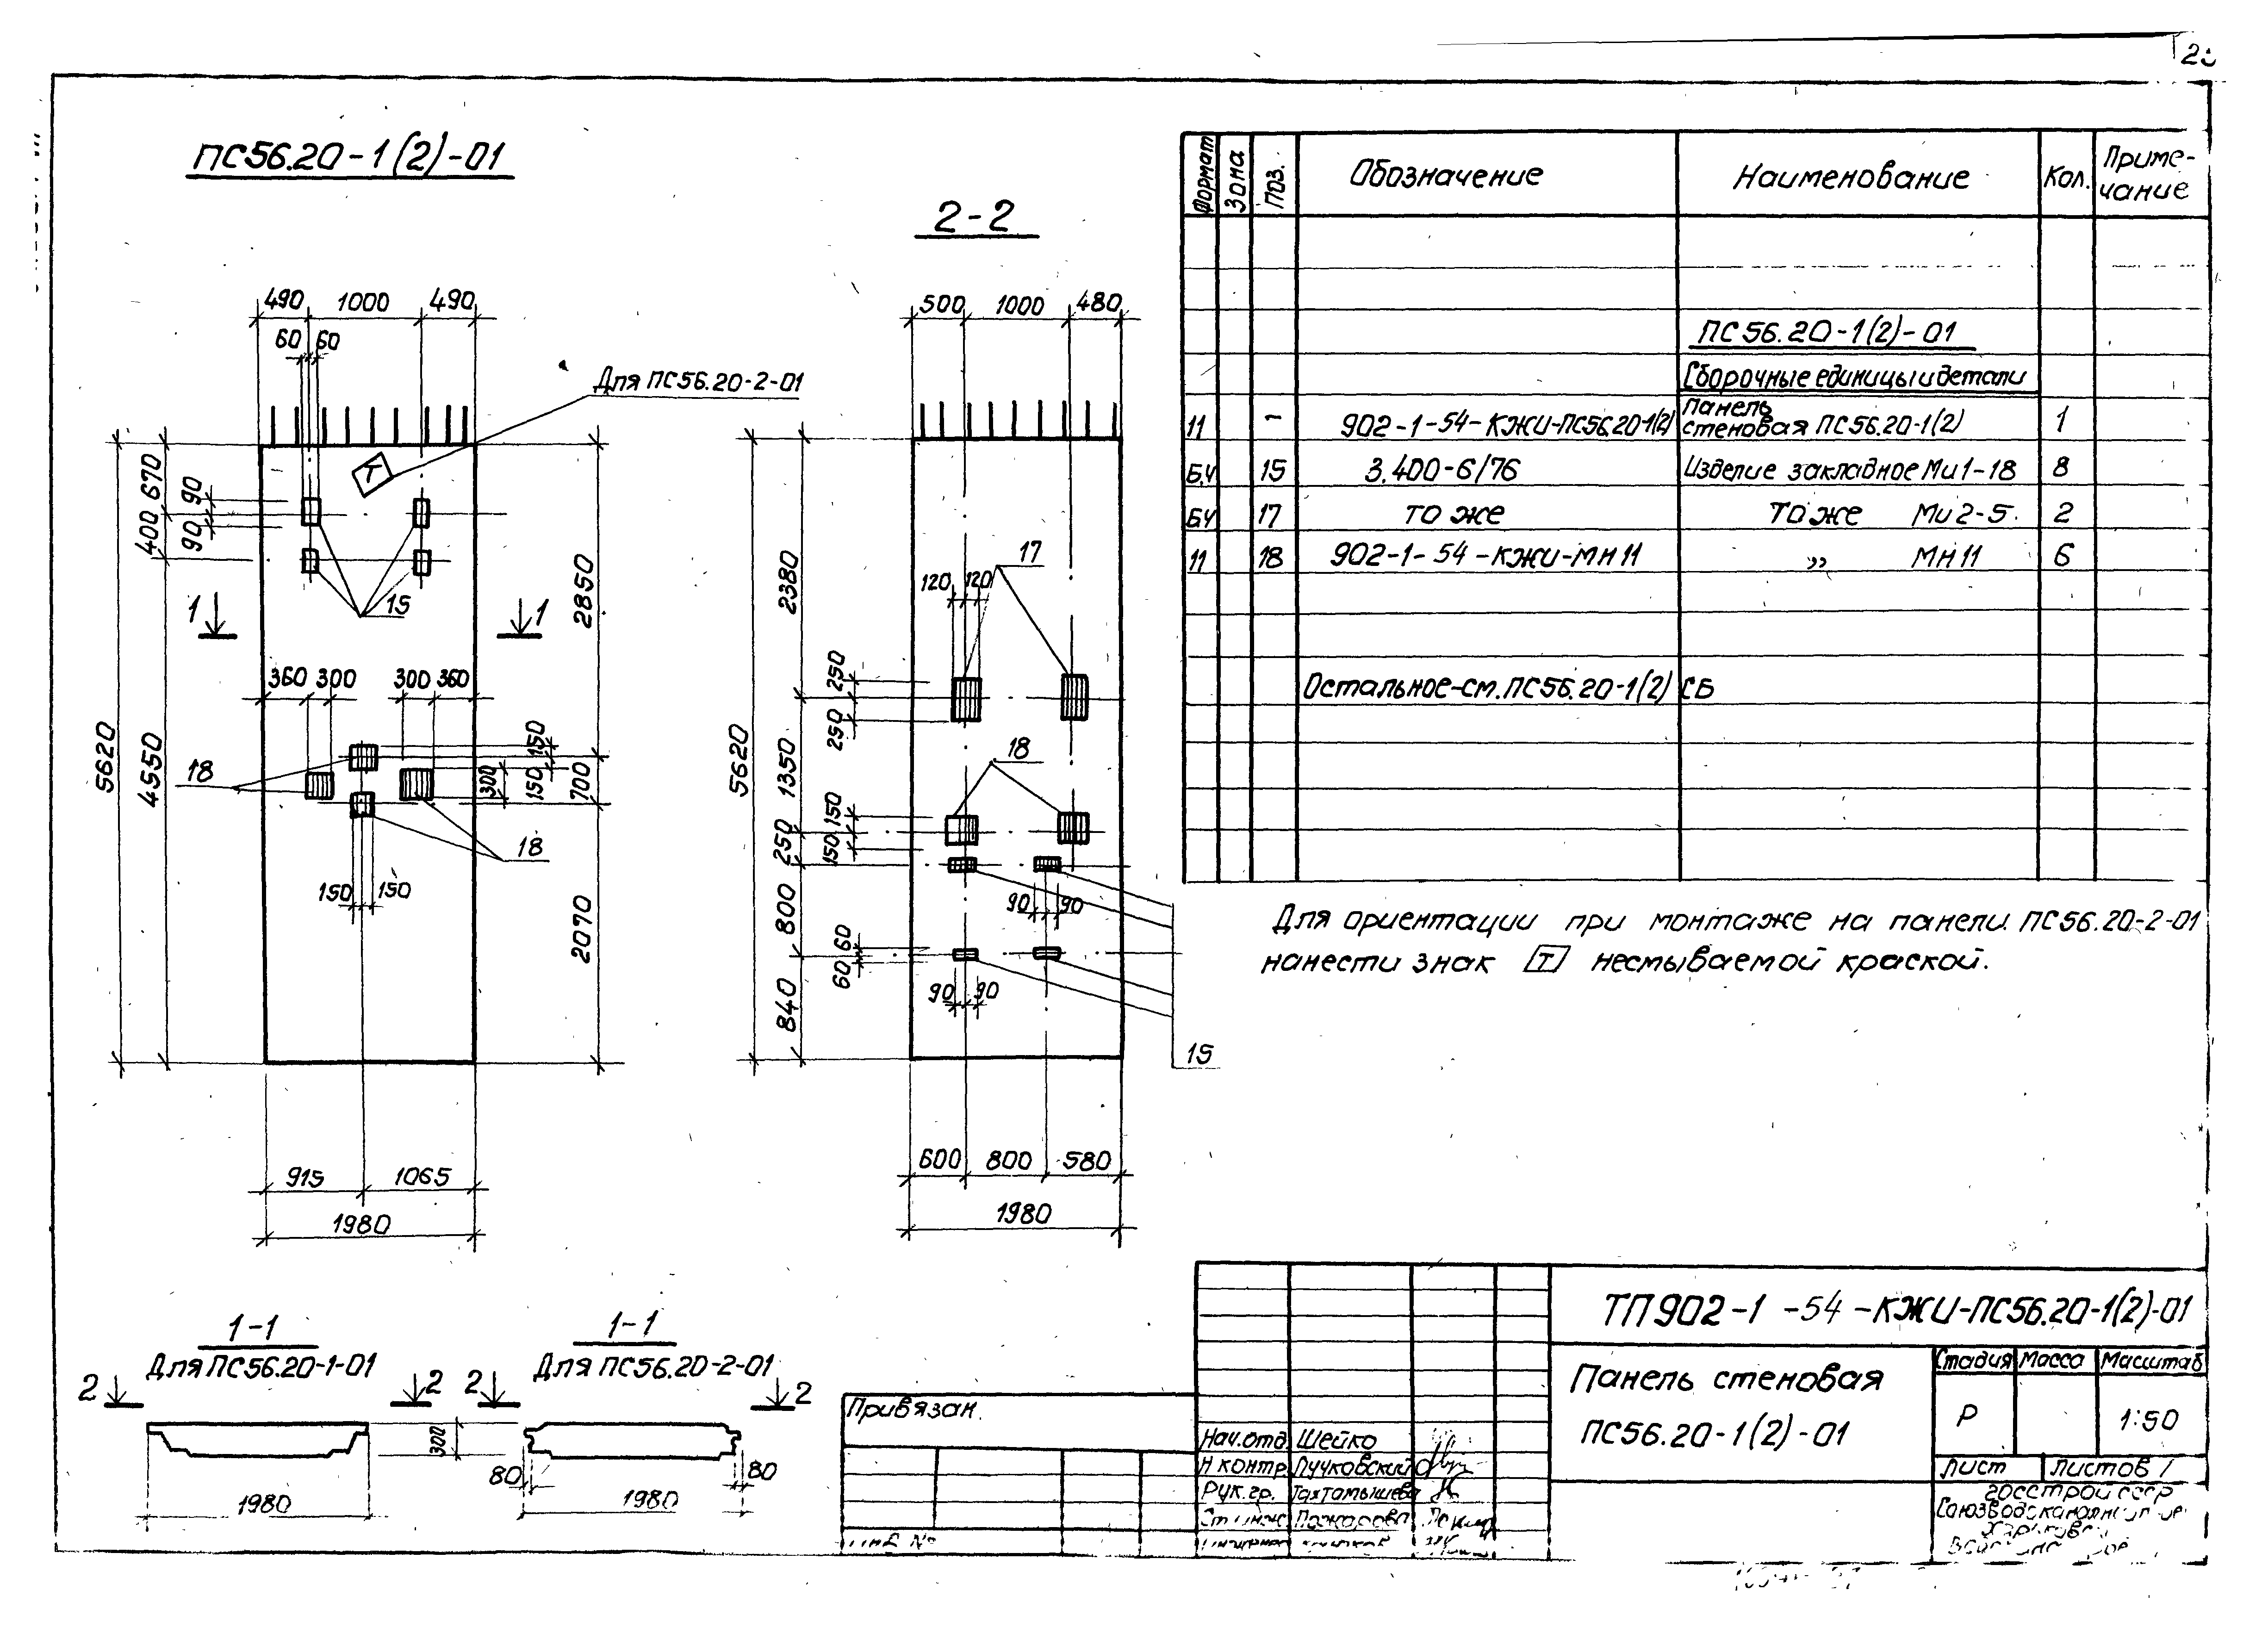 ПС56.20-1(2)-01
2-2
490 1000 490
60 60
Для ПС56.20-2-01
Т
670
400
90
90
15
1 1
2850
360 300 300 360
5620
4550
18
150
150
300
700
18
150 150
2070
915 1065
1980
500 1000 480
17
120 120
2380
250
250
18
5620
1350
150
150
250
800
90 90
60
60
840
90 90
15
600 800 580
1980
1-1
Для ПС56.20-1-01
2 2
300
1980
1-1
Для ПС56.20-2-01
2 2
80 80
1980
Формат Зона Поз. Обозначение Наименование Кол. Приме-
чание
ПС56.20-1(2)-01
Сборочные единицы и детали
11 - 902-1-54-КЖИ-ПС56.20-1(2) Панель
стеновая ПС56.20-1(2) 1
Б.Ч 15 3.400-6/76 Изделие закладное Ми1-18 8
БЧ 17 то же То же Ми2-5 2
11 18 902-1-54-КЖИ-МН11 „ МН11 6
Остальное-см.ПС56.20-1(2) СБ
Для ориентации при монтаже на панели ПС56.20-2-01
нанести знак Т несмываемой краской.
ТП902-1-54-КЖИ-ПС56.20-1(2)-01
Панель стеновая
ПС56.20-1(2)-01
Стадия Масса Масштаб
Р 1:50
Лист Листов 1
Госстрой СССР
Привязан
Нач.отд. Шейко
Н контр Пучковский
Рук.гр. Тахтамышева
Ст инж Пожарова
Инв №